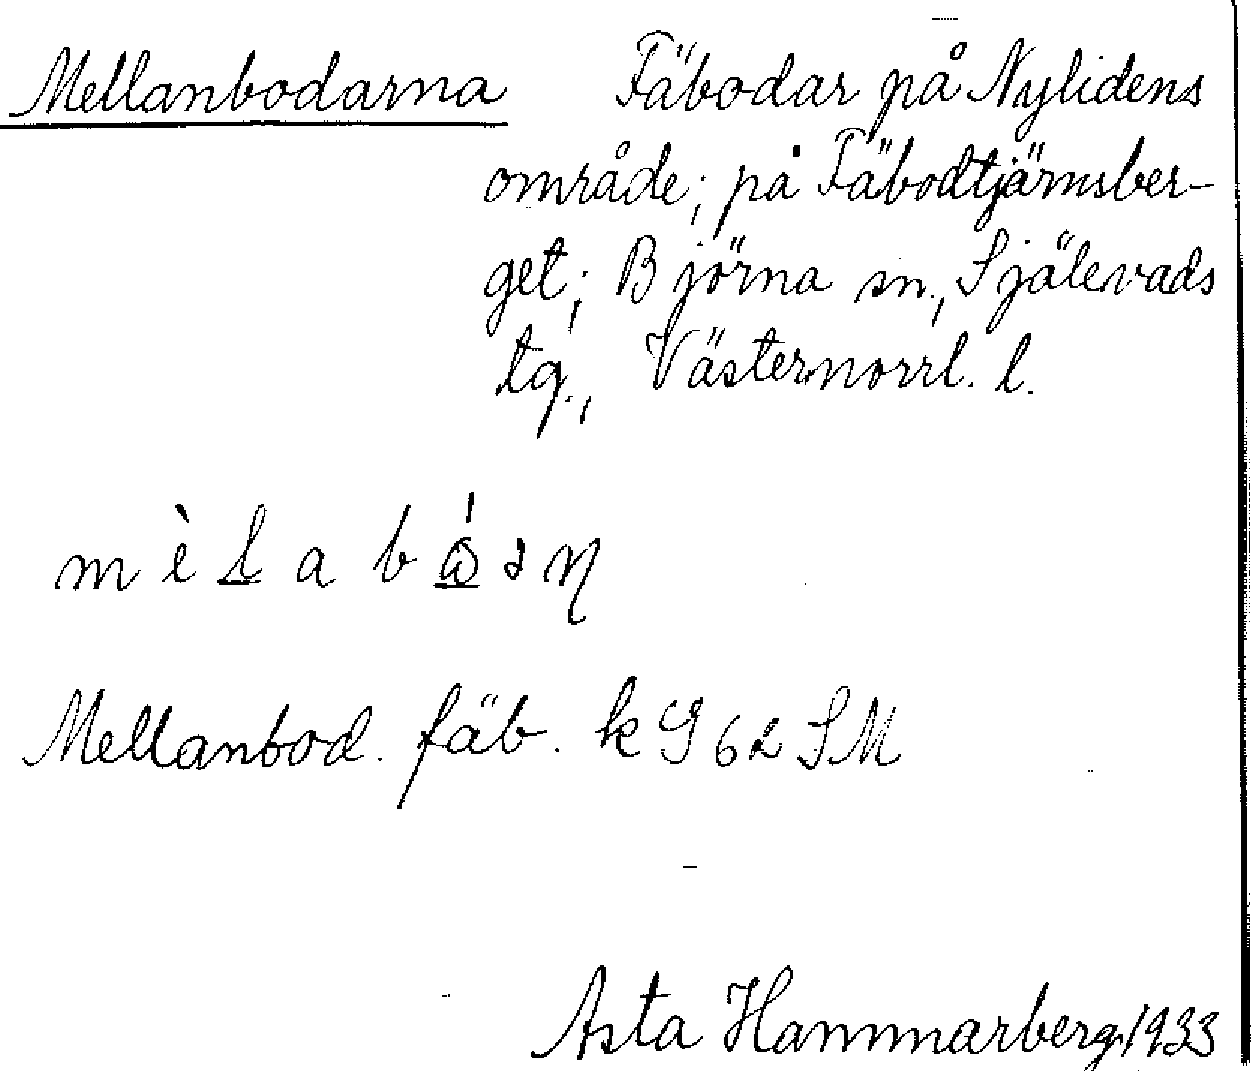 Mellanbodarna Fäbodar på Nylidens
område; på Fäbodtjärnsber-
get; Björna sn., Själevads
tg., Västernorrl. l.
Mellanbod. fäb. k G 62 SM
Asta Hammarberg 1933